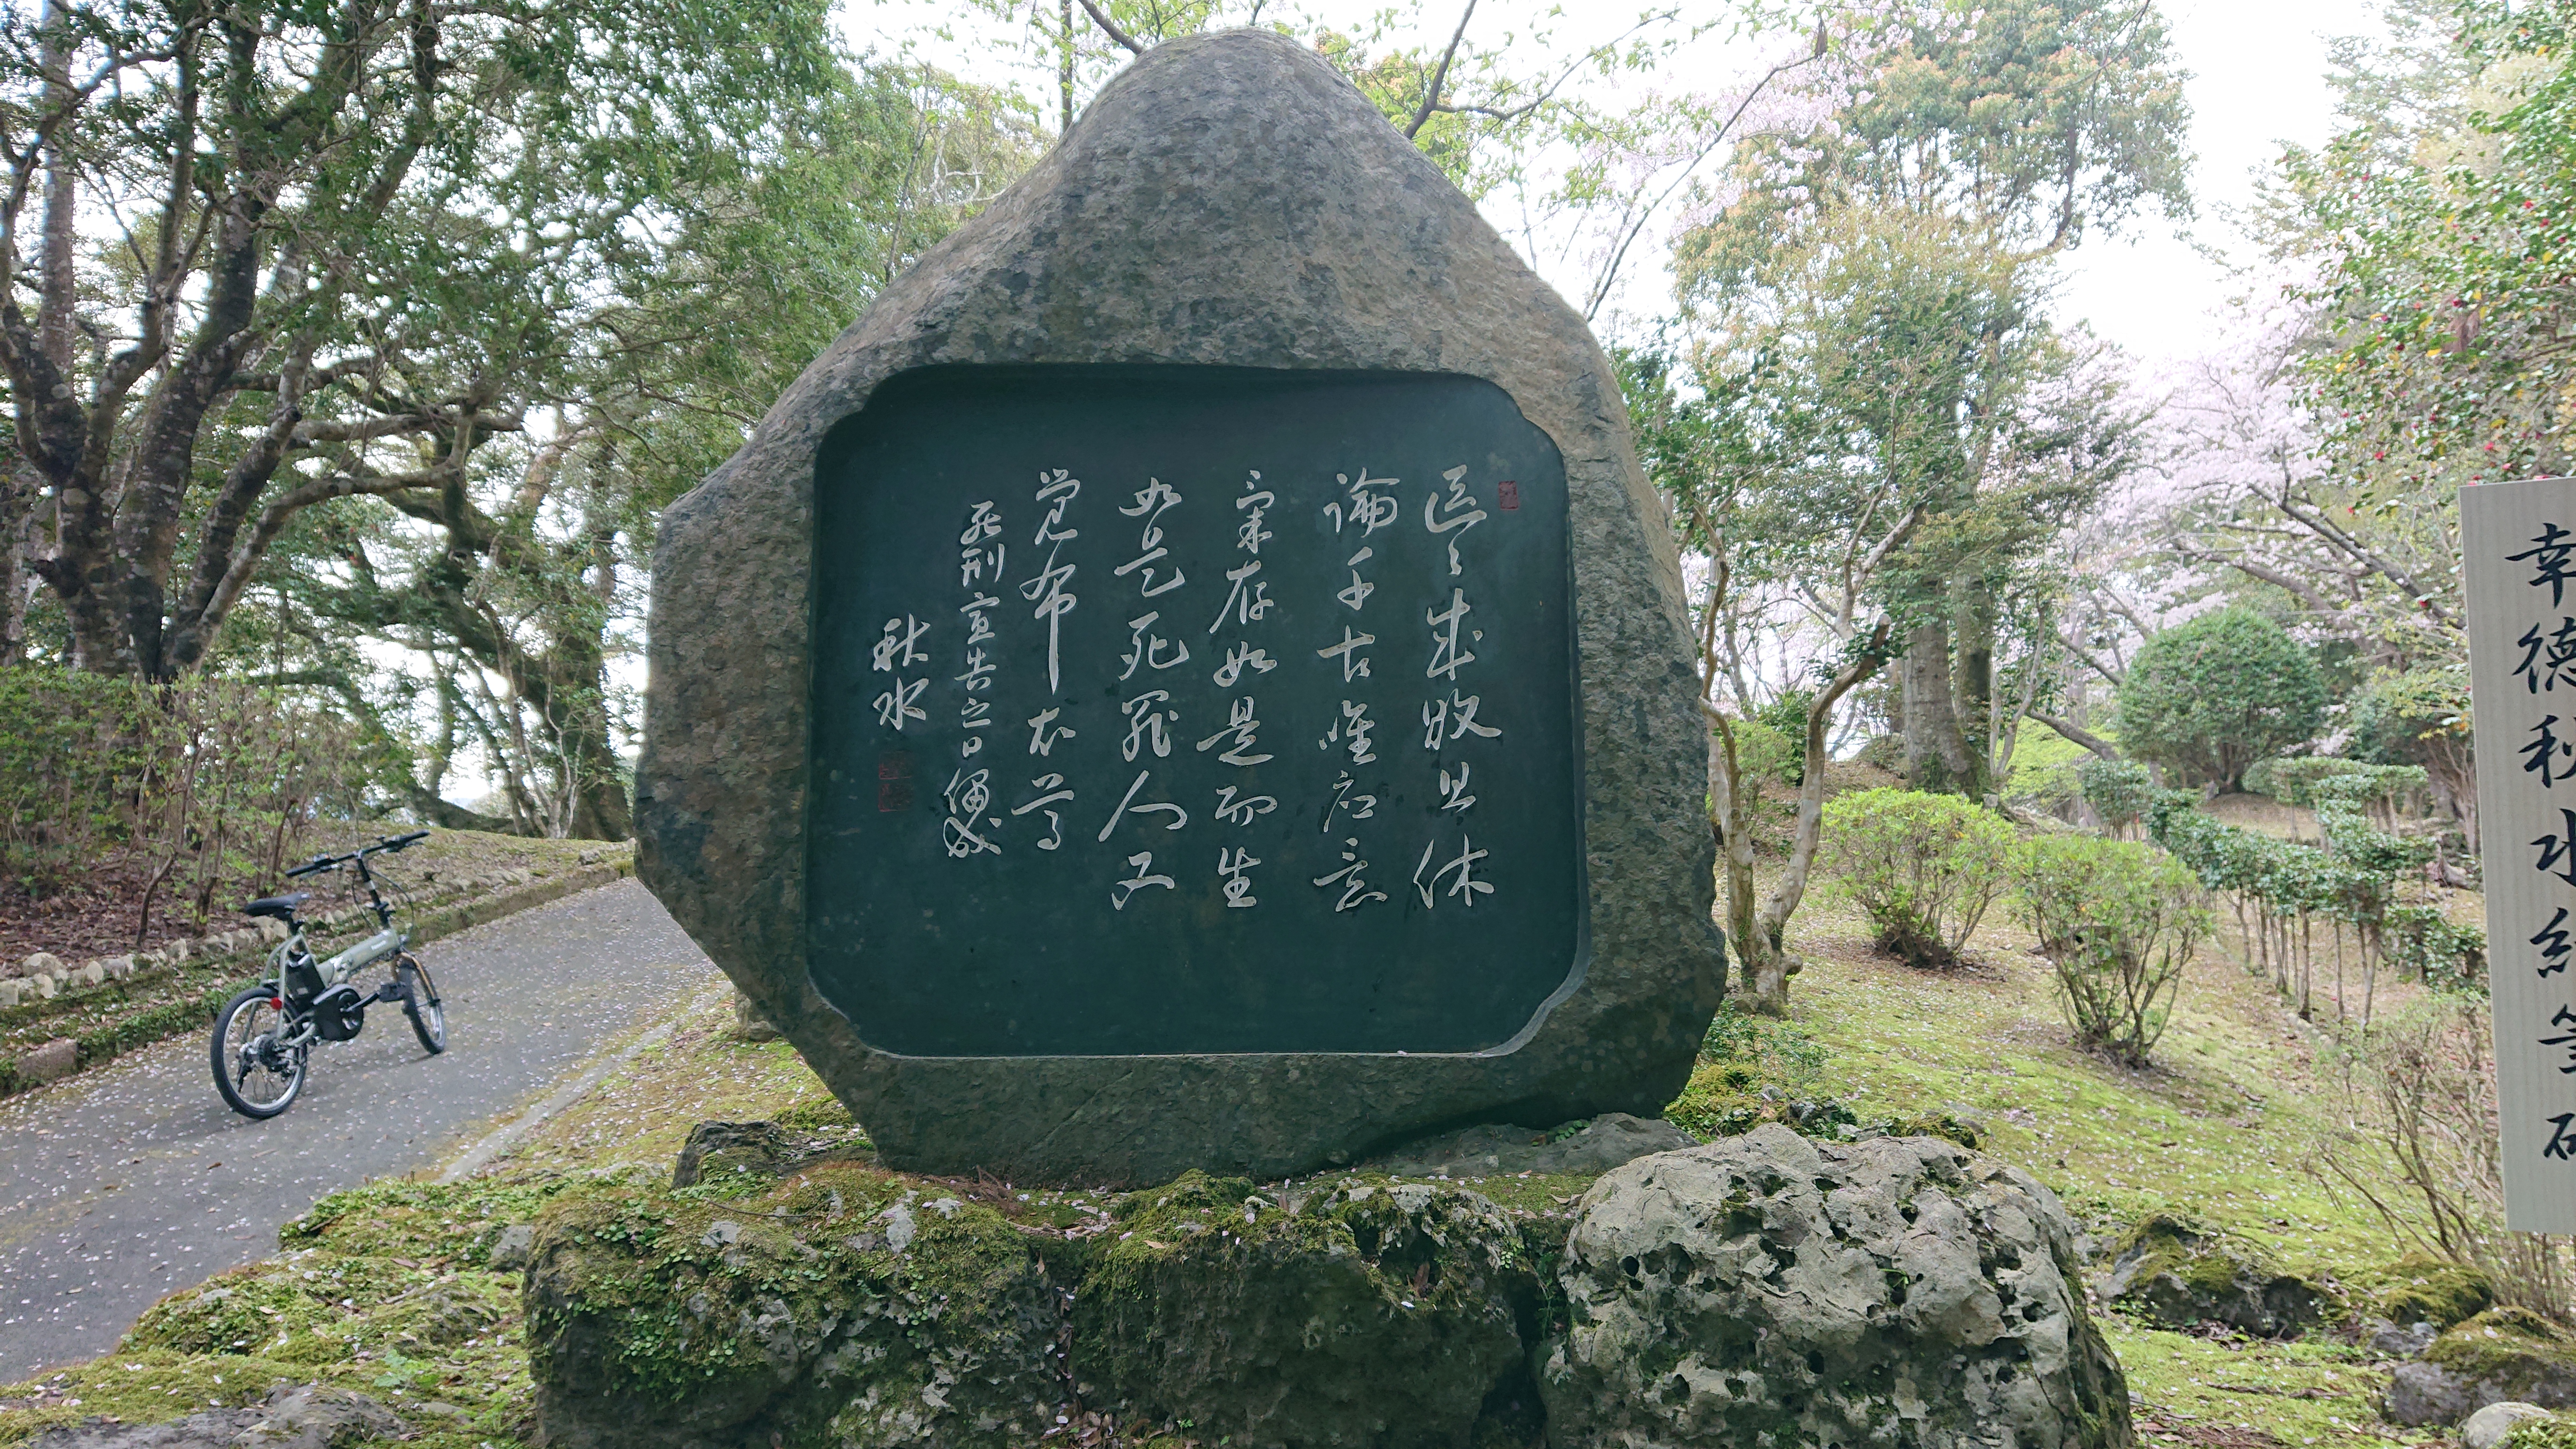 区々成敗且休
論千古唯応意
気存如是而生
如是死罪人又
覚布衣尊
死刑宣告之日偶成
秋水
幸徳秋水絶筆碑